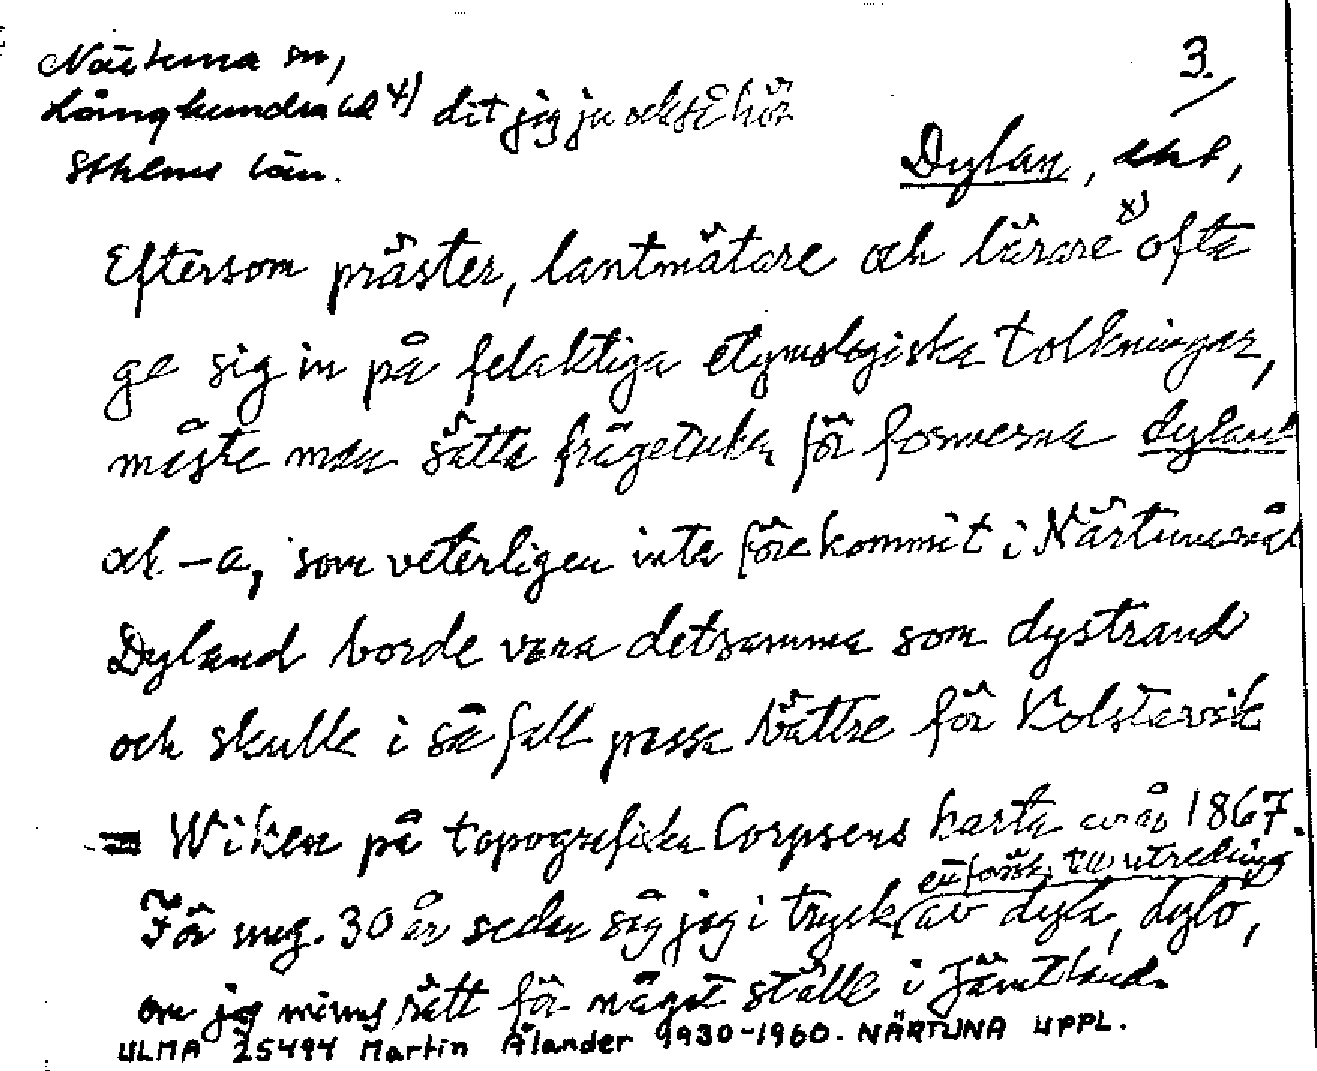 Närtuna sn,
Långhundra hd x) dit jag ju också hör
Sthlms län.
3.
Dylan,
Eftersom präster, lantmätare och lärare x) ofta
ge sig in på felaktiga etymologiska tolkningar,
måste man sätta frågetecken för formerna dyland
och -a, som veterligen inte förekommit i Närtunamål
Dyland borde vara detsamma som dystrand
och skulle i så fall passa bättre för Kolstavik
= Wiken på topografiska Corpsens karta av år 1867.
ett försök till utredning
För ung. 30 år sedan såg jag i tryck av dyla, dylö,
om jag minns rätt för något ställe i Jämtland.
ULMA 25494 Martin Ålander 1930-1960. NÄRTUNA UPPL.